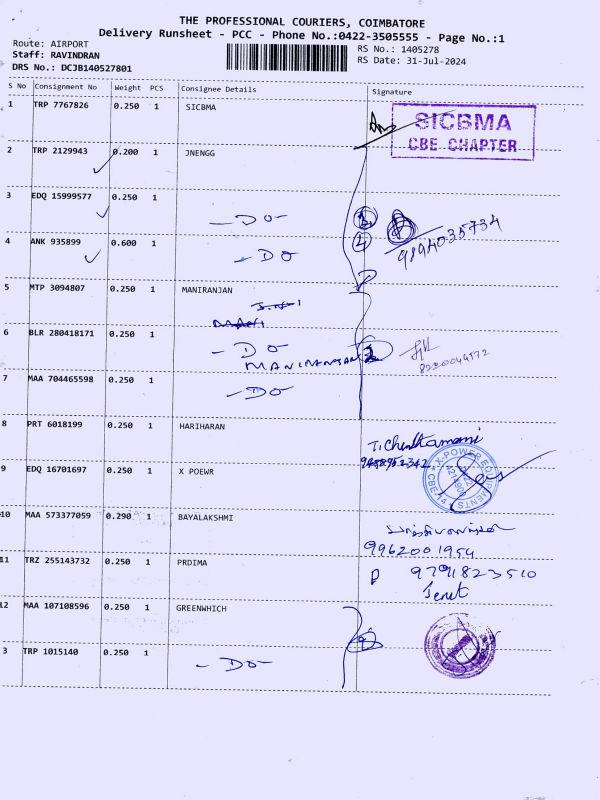 THE PROFESSIONAL COURIERS, COIMBATORE
Delivery Runsheet - PCC - Phone No.:0422-3505555 - Page No.:1
Route: AIRPORT
Staff: RAVINDRAN
DRS No.: DCJB140527801
RS No.: 1405278
RS Date: 31-Jul-2024
S No Consignment No Weight PCS Consignee Details Signature
1 TRP 7767826 0.250 1 SICBMA
SICBMA
CBE CHAPTER
2 TRP 2129943 0.200 1 JNENGG
3 EDQ 15999577 0.250 1
- DO -
9894035734
4 ANK 935899 0.600 1
- DO
5 MTP 3094807 0.250 1 MANIRANJAN
6 BLR 280418171 0.250 1
- DO
MANIRANJAN 2
7 MAA 704465598 0.250 1
- DO -
8 PRT 6018199 0.250 1 HARIHARAN
T. Chenthamani
9 EDQ 16701697 0.250 1 X POEWR
X-POWER EQUIPMENTS
10 MAA 573377059 0.290 1 BAYALAKSHMI
9962001954
11 TRZ 255143732 0.250 1 PRDIMA
9791823510
Jenet
12 MAA 107108596 0.250 1 GREENWHICH
3 TRP 1015140 0.250 1
- DO -